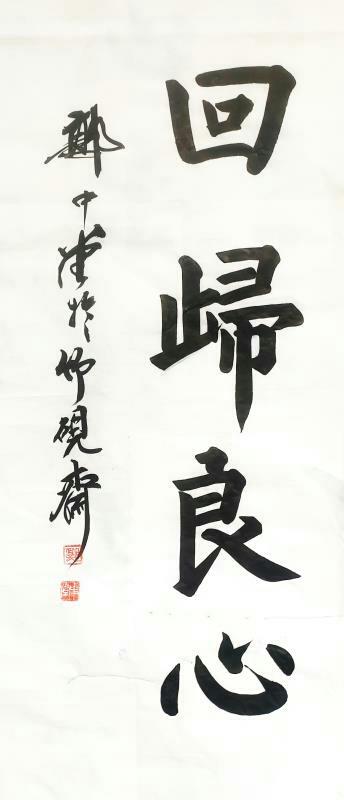 回歸良心
中建於竹硯齋